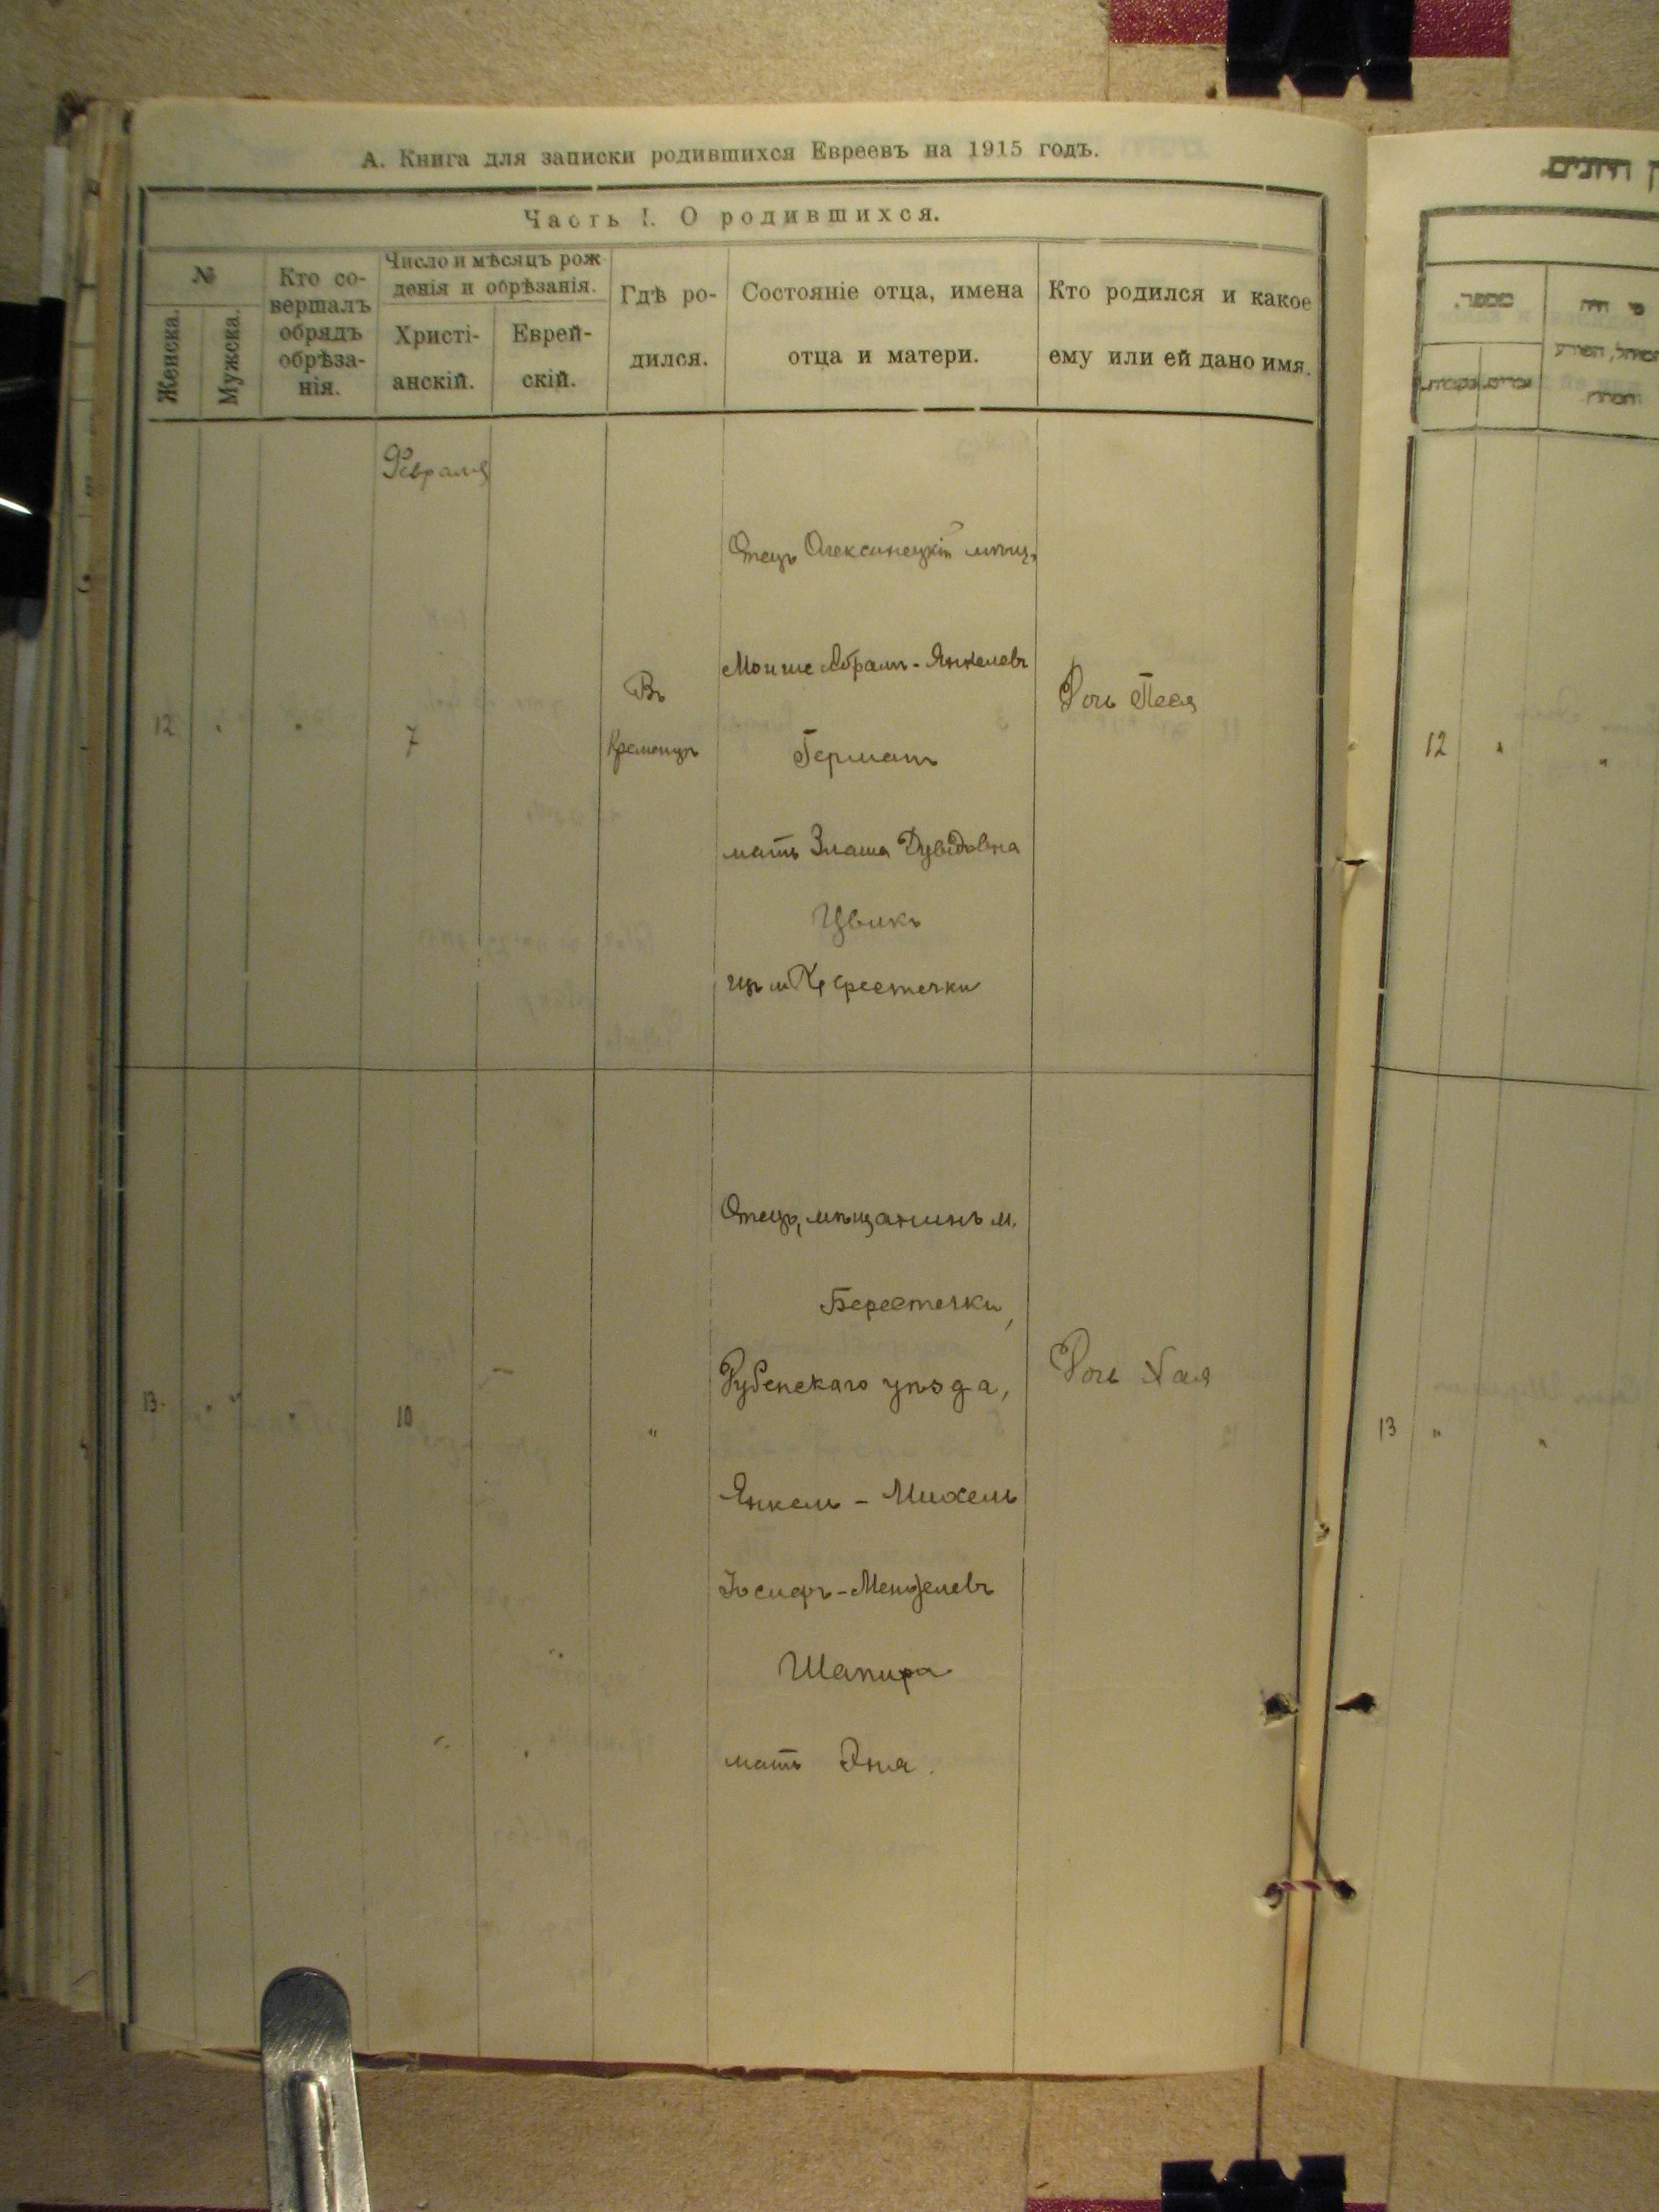 А. Книга для записки родившихся Евреевъ на 1915 годъ.
Часть I. О родившихся.
№
Женска.
Мужска.
Кто со-
вершалъ
обрядъ
обрѣза-
нія.
Число и мѣсяцъ рож
денія и обрѣзанія.
Христі-
анскій.
Еврей-
скій.
Гдѣ ро-
дился.
Состояніе отца, имена
отца и матери.
Кто родился и какое
ему или ей дано имя.
Февраля
12
"
"
7
Въ
Кременцѣ
Отецъ Олексинецкій мѣщ.
Мошие Абрамъ-Янкелевъ
Германъ
мать Злата Дувидовна
Цвикъ
Дочь Песя
13.
"
"
10
"
Отецъ, мѣщанинъ м.
Берестечки,
Дубенскаго уѣзда,
Янкель - Михель
Іосифъ-Менделевъ
Шапира
мать Эня.
Дочь Хая
12
"
"
13
"
"
מספר.